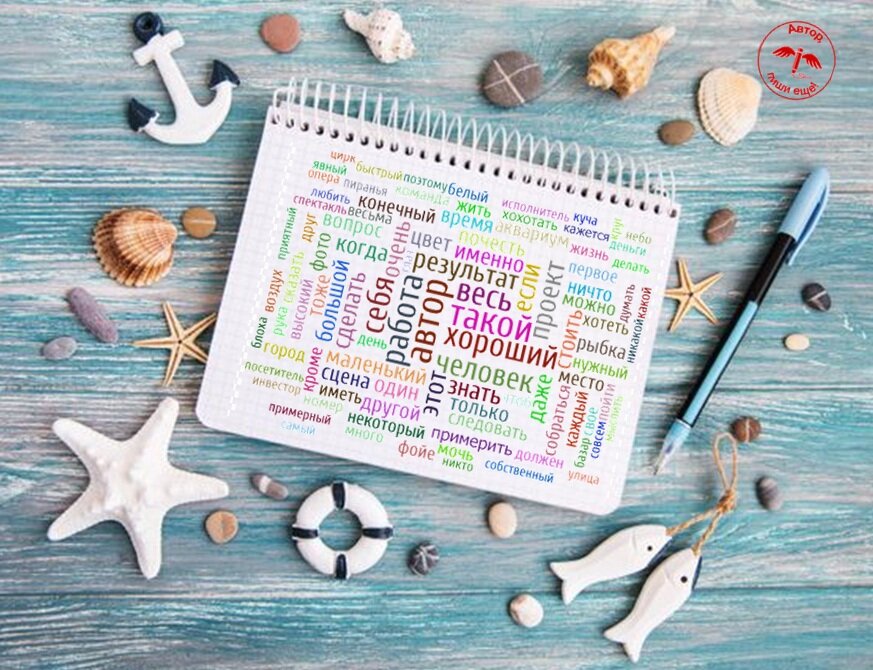 Автор,
пиши еще!
цирк
явный
быстрый
поэтому
белый
опера
пиранья
команда
жить
исполнитель
куча
любить
конечный
время
хохотать
кажется
круг
небо
спектакль
весьма
вопрос
очень
цвет
почесть
аквариум
жизнь
деньги
делать
приятный
друг
фото
когда
именно
результат
если
проект
первое
ничто
можно
думать
какой
воздух
сказать
тоже
большой
сделать
себя
работа
автор
весь
такой
хороший
стоить
хотеть
рыбка
никакой
блоха
рука
высокий
день
город
кроме
маленький
человек
этот
знать
даже
нужный
место
посетитель
инвестор
сцена
один
чтоб
собраться
каждый
пойти
номер
иметь
другой
только
следовать
свое
совсем
базар
примерный
самый
некоторый
много
примерить
должен
фойе
мочь
никто
собственный
улица